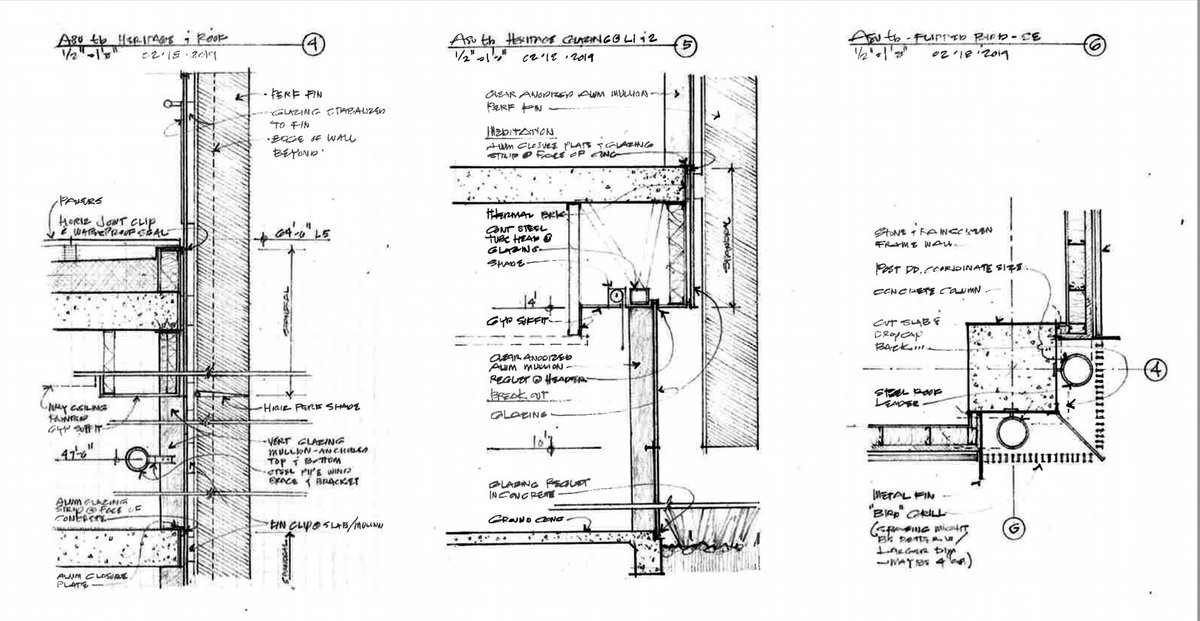 ASU tb HERITAGE & ROOF
4
1/2" = 1'0" 02.18.2019
PERF FIN
GLAZING STABALIZED
TO FIN
EDGE OF WALL
BEYOND
PAVERS
HORIZ JOINT CLIP
& WATERPROOF SEAL
64'-6" L5
SPANDREL
CEILING
PAINTED
GYP SOFFIT
HORIZ PERF SHADE
47'-6"
VERT GLAZING
MULLION-ANCHORED
TOP & BOTTOM
STEEL PIPE WIND
BRACE & BRACKET
ALUM GLAZING
STRIP @ FACE OF
CONCRETE
FIN CLIP @ SLAB/MULLION
SPANDREL
ALUM CLOSURE
PLATE
ASU tb HERITAGE GLAZING @ L1 & 2
5
1/2" = 1'0" 02.12.2019
CLEAR ANODIZED ALUM MULLION
PERF FIN
MEDITATION
ALUM CLOSURE PLATE & GLAZING
STRIP @ FACE OF CONC
THERMAL BRK
CONT STEEL
TUBE HEAD @
GLAZING
SHADE
SPANDREL
14'
GYP SOFFIT
CLEAR ANODIZED
ALUM MULLION
REGLET @ HEADER
BREAK OUT
GLAZING
10'
GLAZING REGLET
IN CONCRETE
GROUND CONC
ASU tb - FLIPPED BIRD - SE
6
1/2" = 1'0" 02.18.2019
STONE & RAINSCREEN
FRAME WALL
POST DD, COORDINATE SIZE
CONCRETE COLUMN
CUT SLAB &
DROPCAP
BACK...
4
STEEL ROOF
LEADER
METAL FIN
"BIRD" GRILL
(SPACING MIGHT
BE BETTER W/
LARGER DIM
- MAYBE 4" OC.)
G